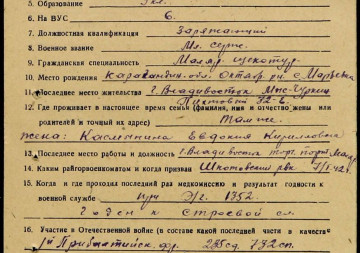 5. Образование 3 кл.
6. На ВУС 6.
7. Должностная квалификация Заряжающий
8. Военное звание Мл. серж.
9. Гражданская специальность Маляр щекотур.
10. Место рождения Октябр. рн с.
11. Последнее место жительства г. Владивосток Мыс-Чуркин
12. Где проживает в настоящее время семья (фамилия, имя и отчество жены или 32-6.
родителей и точный их адрес) Там же.
жена: Евдокия Кириловна
13. Последнее место работы и должность г. Владивосток торг. порт
14. Каким райгорвоенкоматом и когда призван Шкотовский рвк
15. Когда и где проходил последний раз медкомиссию и результат годности к
военной службе при Э/г. 1352
Годен к строевой сл.
16. Участие в Отечественной войне (в составе какой последней части в качестве
1й Прибалтийск. фр. 235сд. 732сп.